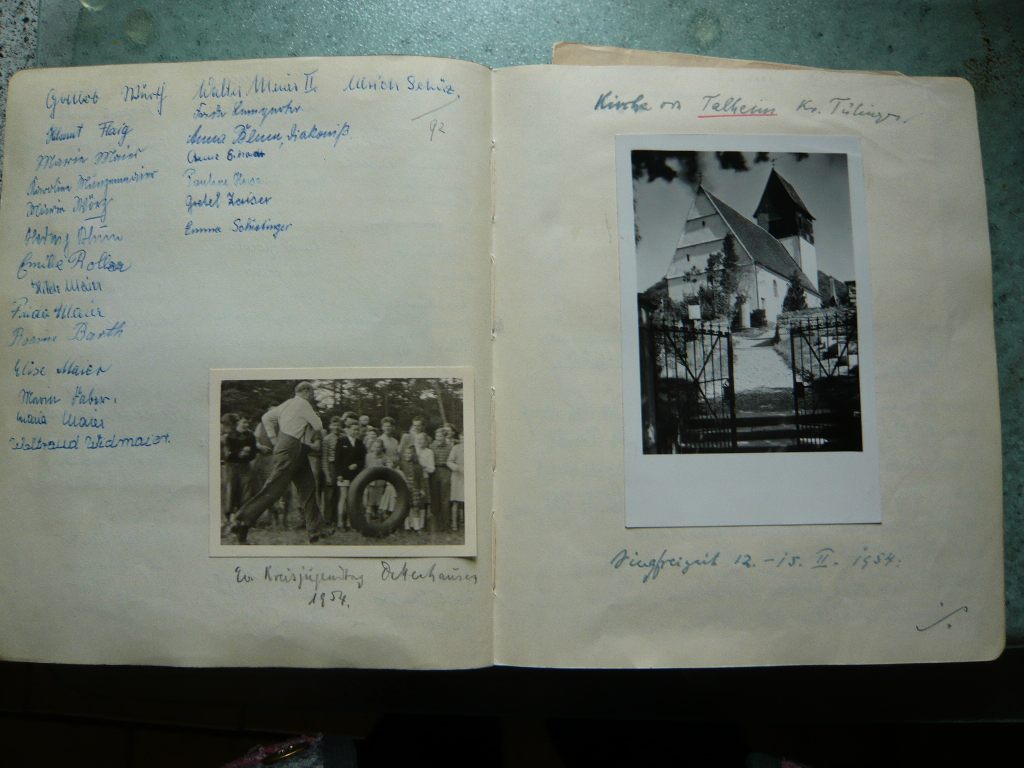 Gottlob Würth
Helmut Flaig
Marie Maier
Karoline
Maria
Hedwig
Emilie Roller
Maier
Frida Maier
Rosine Barth
Elise Maier
Maria Faber.
Maria Maier
Waltraud Widmaier.
Walter Maier II.
Anna Blum, Diakoniß
Pauline
Gretel Kaiser
Emma Schietinger
Ulrich Schüz.
92
Ev. Kreisjugendtag Dettenhausen
1954.
Kirche von Talheim Kr. Tübingen.
Singfreizeit 12.-15. II. 1954.